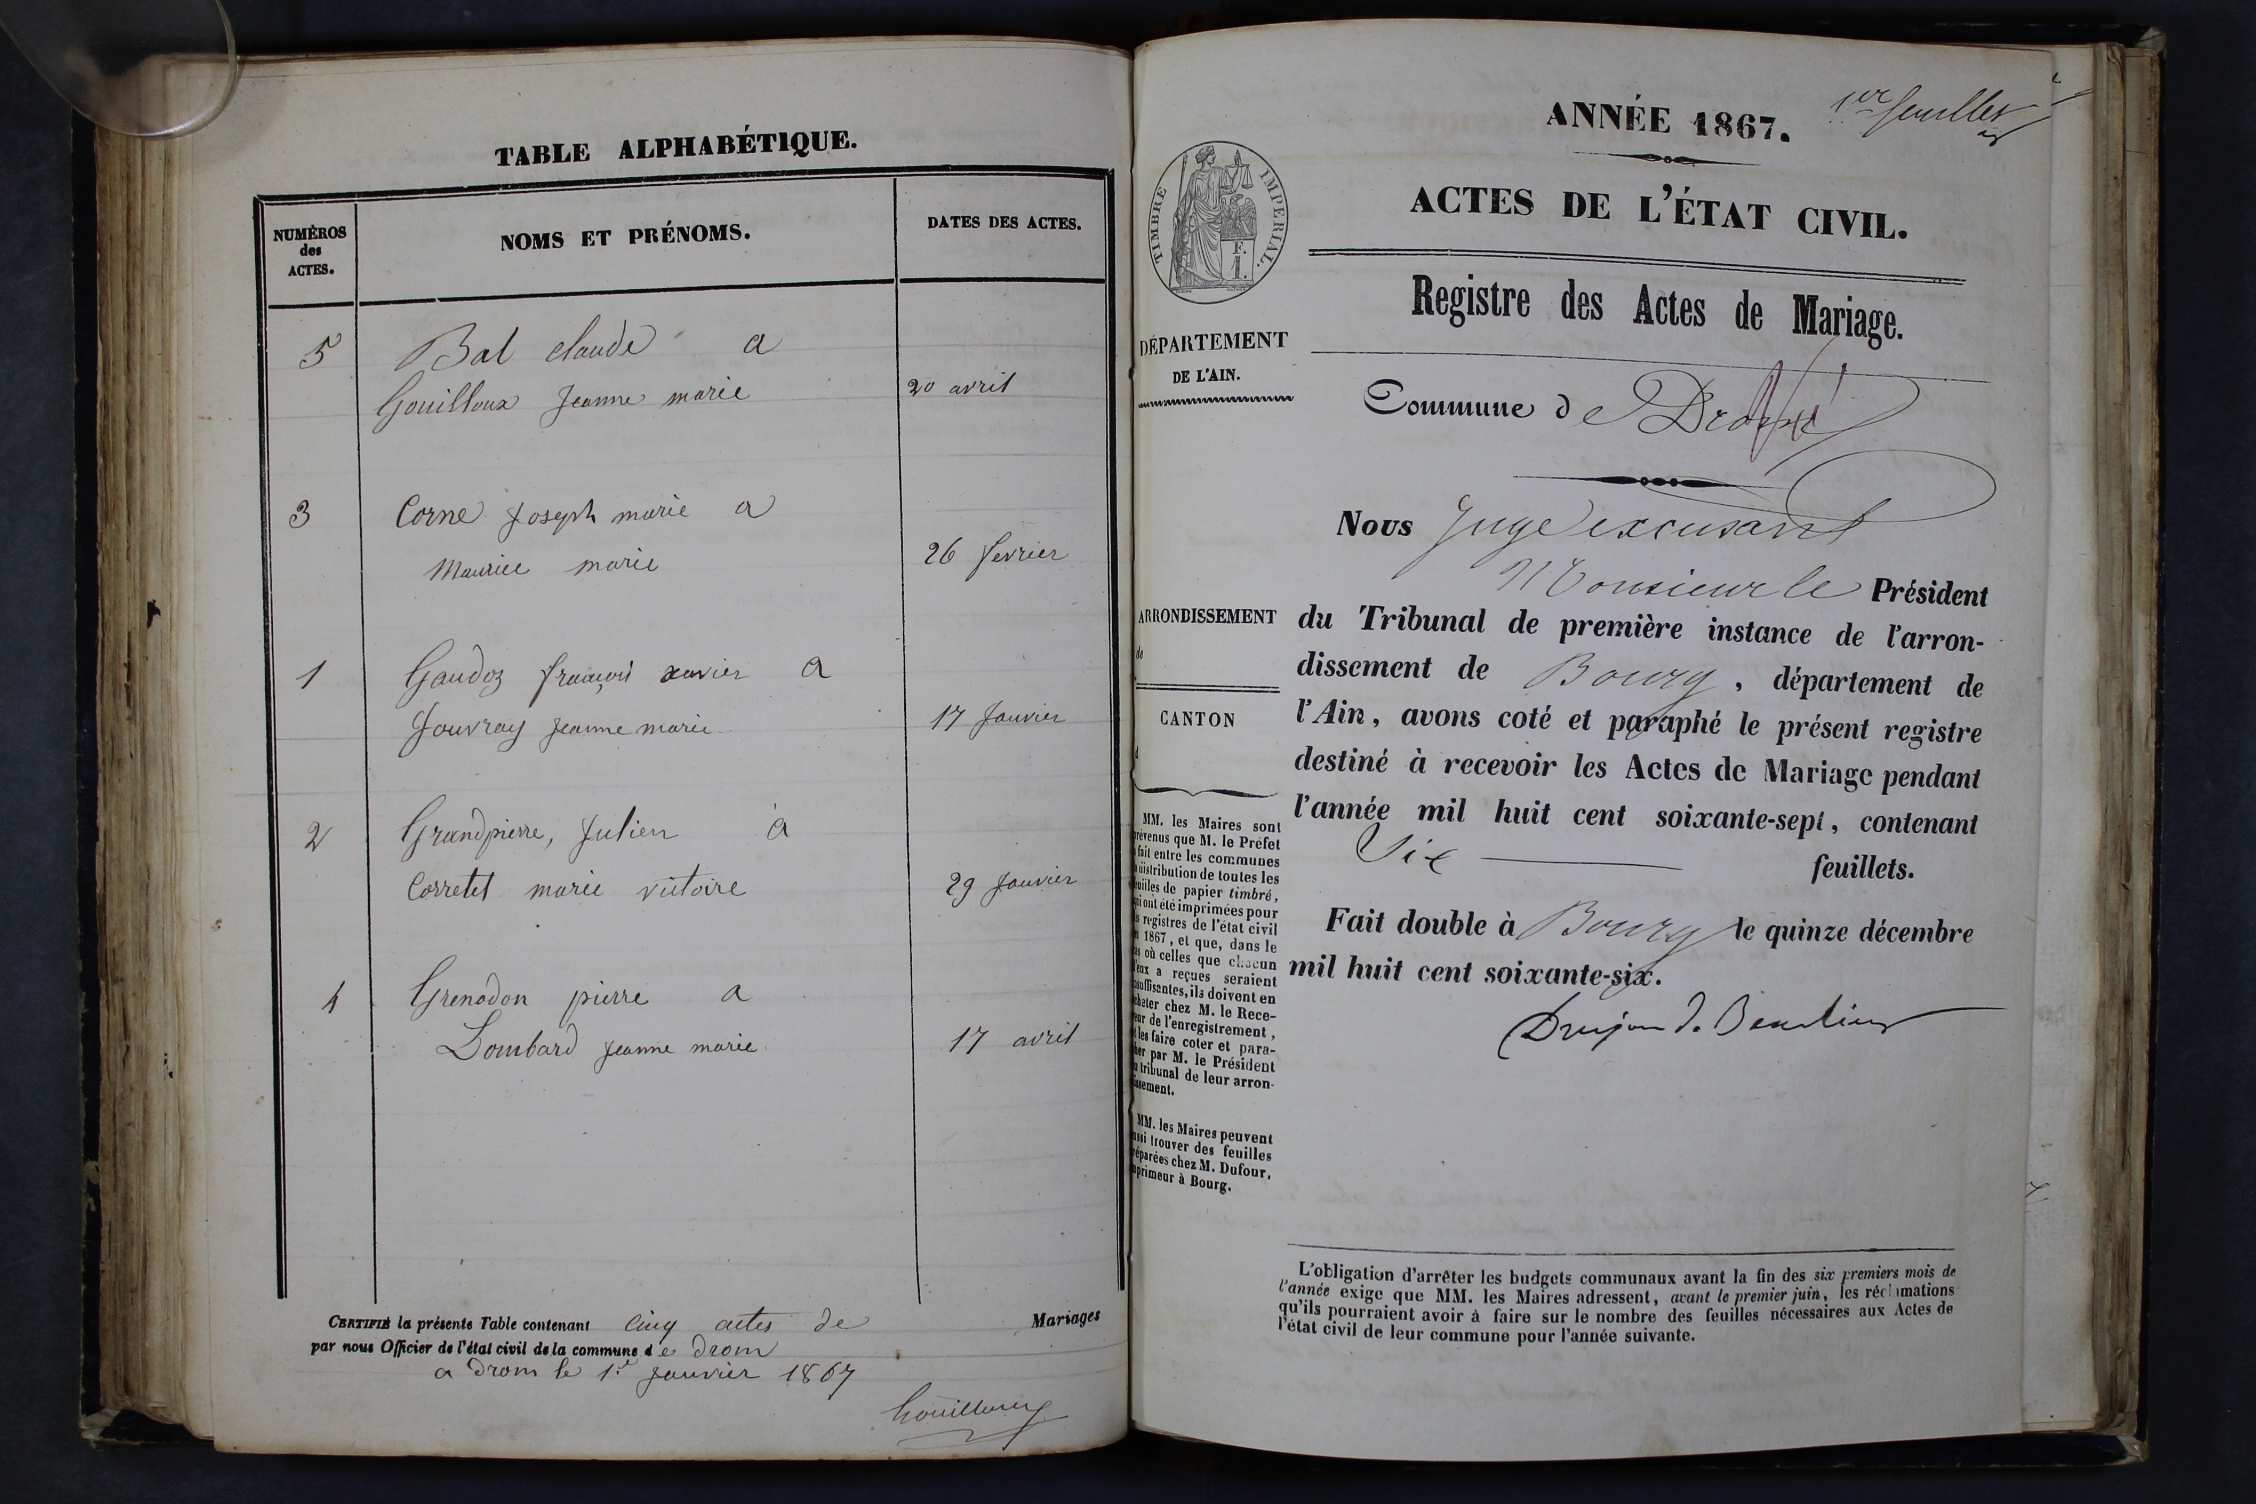 TABLE ALPHABÉTIQUE.
NUMÉROS
des
ACTES.
NOMS ET PRÉNOMS.
DATES DES ACTES.
5 Bal claude a
Gouilloux Jeanne marie 20 avril
3 Corne Joseph marie a
Maurice marie 26 fevrier
1 Gaudoz françois xavier a
Jouvray Jeanne marie 17 Janvier
2 Grandpierre, Julien à
Corretet marie victoire 29 Janvier
4 Grenodon pierre a
Lombard Jeanne marie 17 avril
CERTIFIÉ la présente Table contenant cinq actes de Mariages
par nous Officier de l'état civil de la commune de drom
a drom le 1er Janvier 1867
Gouilloux
1er feuillet
ANNÉE 1867.
ACTES DE L'ÉTAT CIVIL.
Registre des Actes de Mariage.
TIMBRE IMPERIAL.
F.
1.
DÉPARTEMENT
DE L'AIN.
Commune de Drom
Nous Juge excusant
Monsieur le Président
du Tribunal de première instance de l'arron-
dissement de Bourg, département de
l'Ain, avons coté et paraphé le présent registre
destiné à recevoir les Actes de Mariage pendant
l'année mil huit cent soixante-sept, contenant
Six feuillets.
Fait double à Bourg le quinze décembre
mil huit cent soixante-six.
ARRONDISSEMENT
de
CANTON
d
MM. les Maires sont
prévenus que M. le Préfet
a fait entre les communes
la distribution de toutes les
feuilles de papier timbré,
qui ont été imprimées pour
les registres de l'état civil
en 1867, et que, dans le
cas où celles que chacun
d'eux a reçues seraient
insuffisantes, ils doivent en
acheter chez M. le Rece-
veur de l'enregistrement,
et les faire coter et para-
pher par M. le Président
du tribunal de leur arron-
dissement.
MM. les Maires peuvent
aussi trouver des feuilles
préparées chez M. Dufour,
imprimeur à Bourg.
L'obligation d'arrêter les budgets communaux avant la fin des six premiers mois de
l'année exige que MM. les Maires adressent, avant le premier juin, les réclamations
qu'ils pourraient avoir à faire sur le nombre des feuilles nécessaires aux Actes de
l'état civil de leur commune pour l'année suivante.